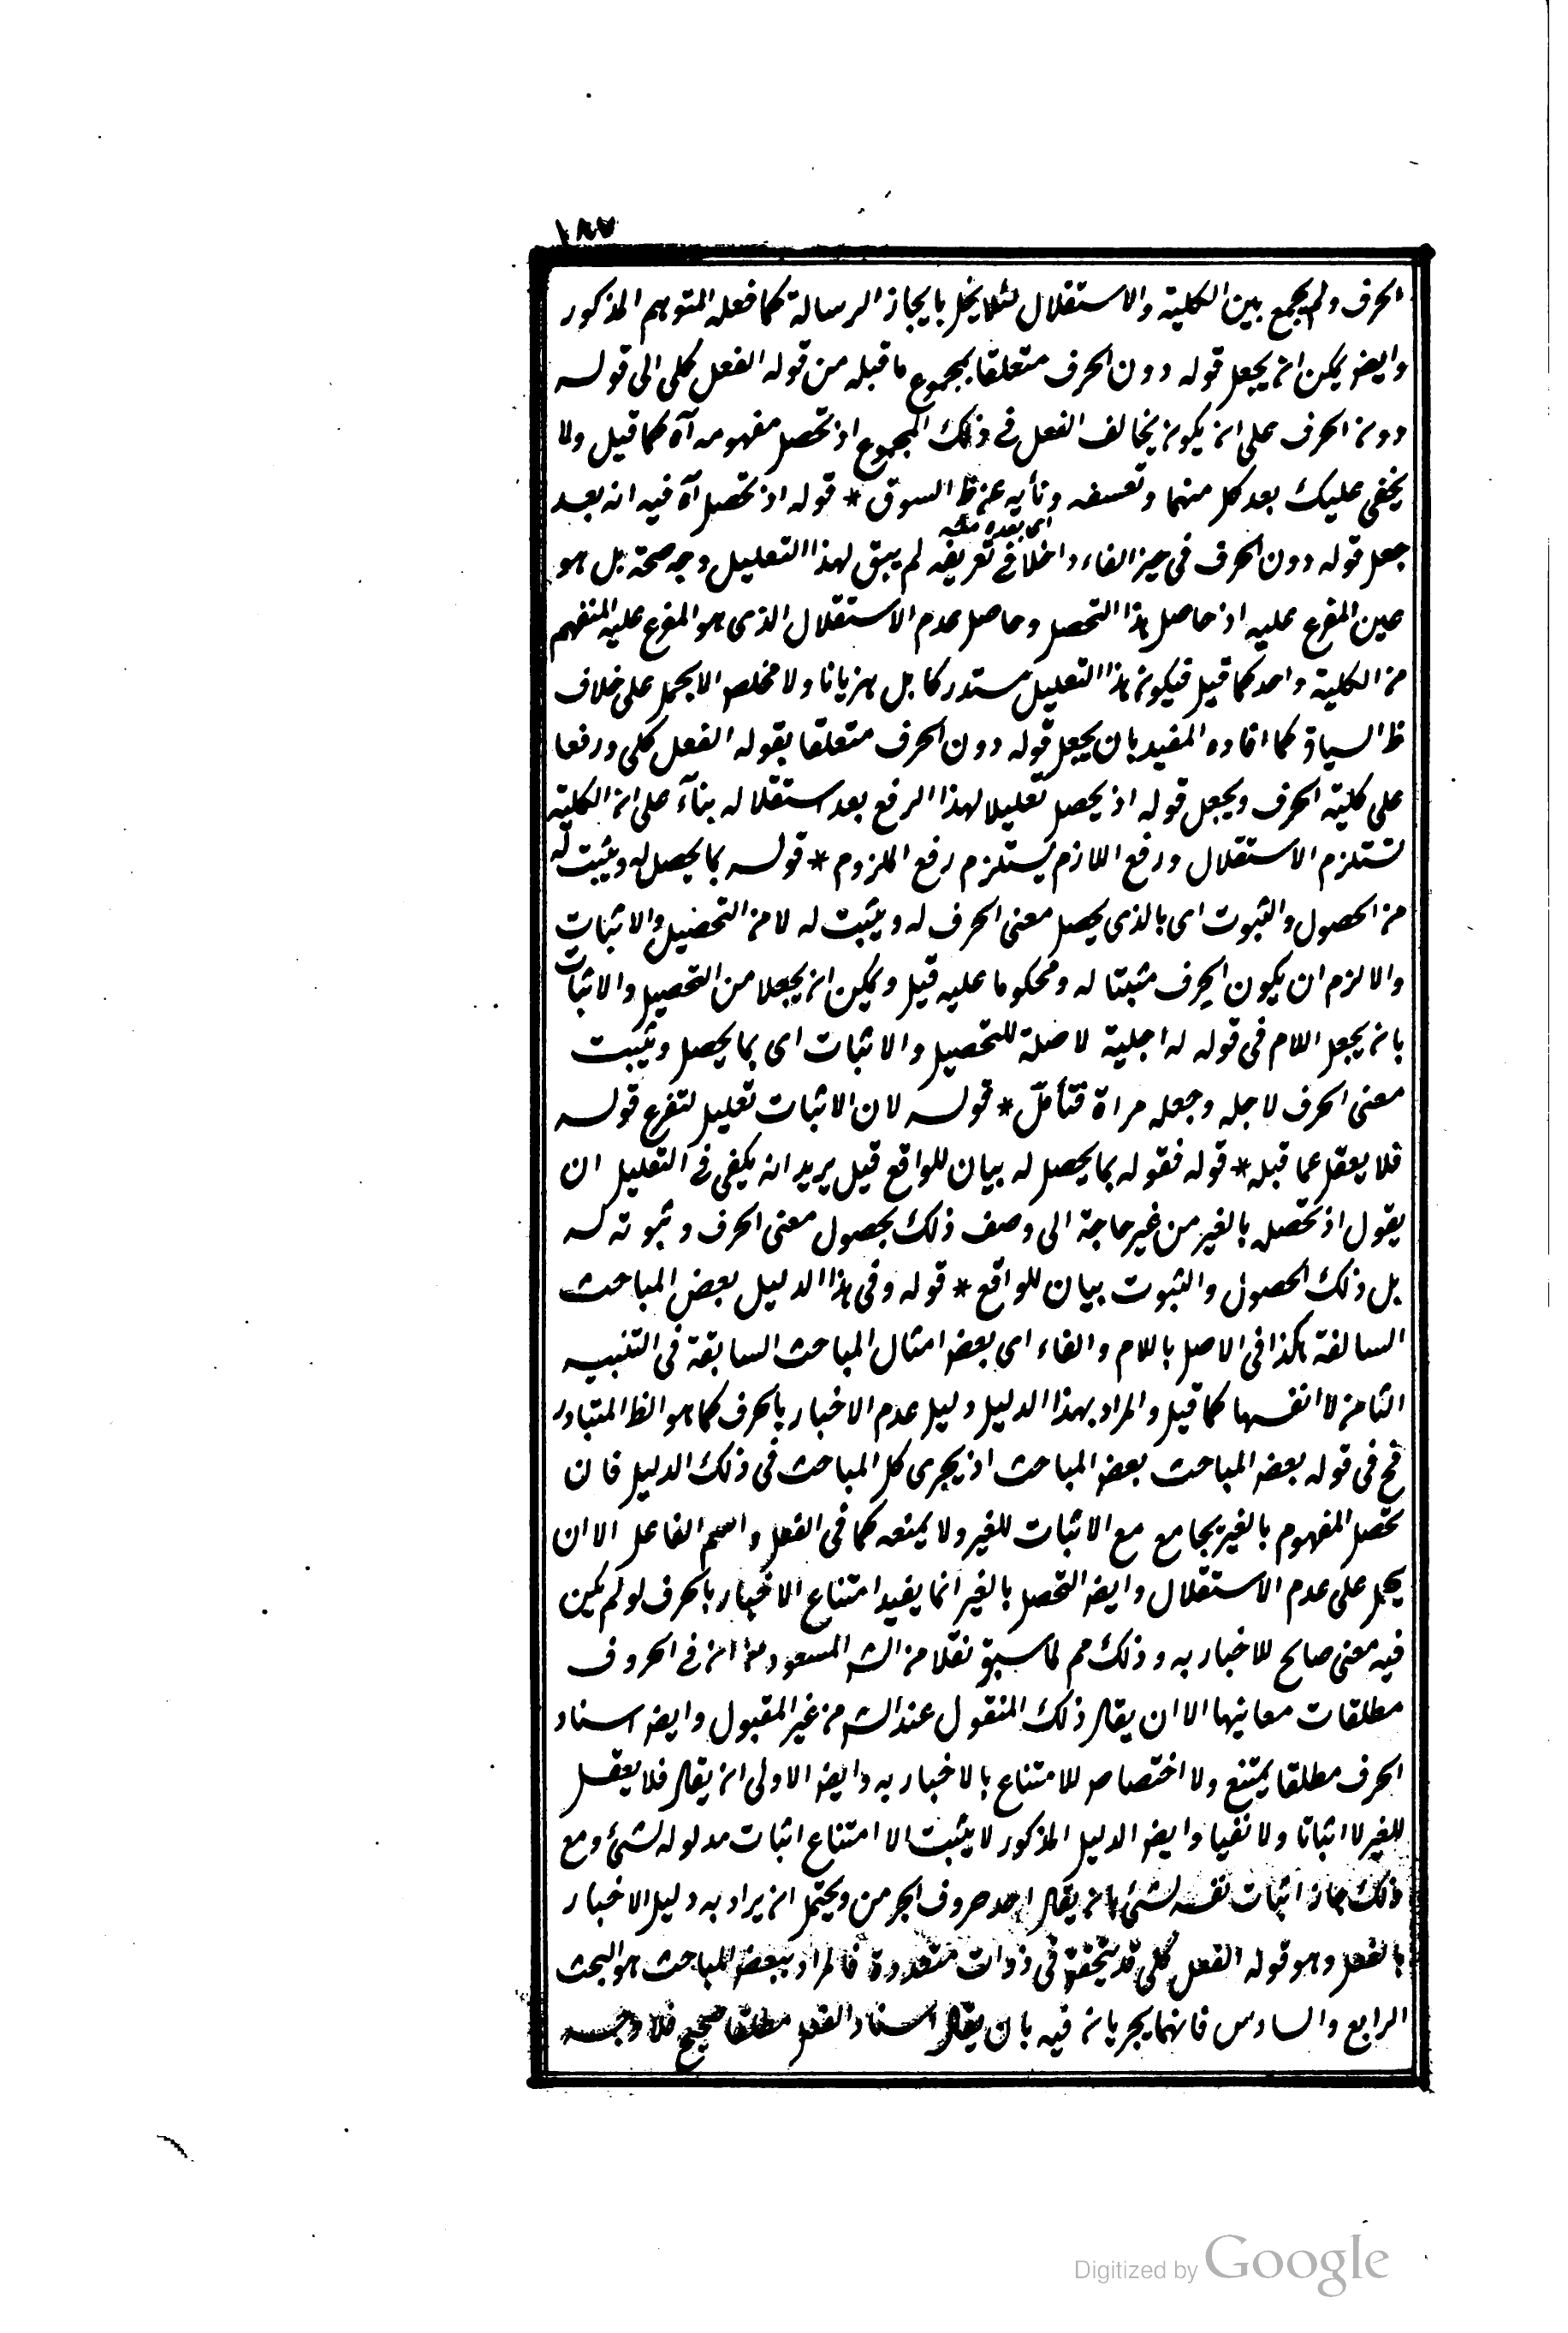 ١٨٧
الحرف ولم يجمع بين الكلية والاستقلال لئلا يخل بايجاز الرسالة كما فعله المتوهم المذكور
وايضو يمكن ان يجعل قوله دون الحرف متعلقا بمجموع ما قبله من قوله الفعل كلى الى قوله
دون الحرف على ان يكون يخالف الفعل فى ذلك المجموع اذ تحصل مفهومه آه كما قيل ولا
يخفى عليك بعد كل منهما وتعسفه ونأيه عن ظ السوق * قوله اذ تحصل آه فيه انه بعد
اى بعده منه
جعل قوله دون الحرف فى حيز الفاء داخلا فى تعريفه لم يبق لهذا التعليل وجه صحة بل هو
عين المفرع عليه اذ حاصل هذا التحصل وحاصل عدم الاستقلال الذى هو المفرع عليه المنفهم
من الكلية واحد كما قيل فيكون هذا التعليل مستدركا بل هزيانا ولا مخلص الا بحمل على خلاف
ظ السياق كما افاده المفيد بان يجعل قوله دون الحرف متعلقا بقوله الفعل كلى ورفعا
على كلية الحرف ويجعل قوله اذ يحصل تعليلا لهذا الرفع بعد استقلاله بناء على ان الكلية
تستلزم الاستقلال ورفع اللازم يستلزم رفع الملزوم * قوله بما يحصل له ويثبت له
من الحصول والثبوت اى بالذى يحصل معنى الحرف له ويثبت له لا من التحصيل والاثبات
والا لزم ان يكون الحرف مثبتا له ومحكوما عليه قيل ويمكن ان يجعلا من التحصيل والاثبات
بان يجعل اللام فى قوله له اجلية لا صلة للتحصيل والاثبات اى بما يحصل ويثبت
معنى الحرف لاجله وجعله مراة فتأمل * قوله لان الاثبات تعليل لتفرع قوله
فلا يعقل عما قبله * قوله فقوله بما يحصل له بيان للواقع قيل يريد انه يكفى فى التعليل ان
يقول اذ تحصله بالغير من غير حاجة الى وصف ذلك بحصول معنى الحرف وثبوته له
بل ذلك الحصول والثبوت بيان للواقع * قوله وفى هذا الدليل بعض المباحث
السالفة هكذا فى الاصل باللام والفاء اى بعض امثال المباحث السابقة فى التنبيه
الثامن لا انفسها كما قيل والمراد بهذا الدليل دليل عدم الاخبار بالحرف كما هو الظ المتبادر
فح فى قوله بعض المباحث بعض المباحث اذ يجرى كل المباحث فى ذلك الدليل فان
تحصل المفهوم بالغير يجامع مع الاثبات للغير ولا يمنعه كما فى الفعل واسم الفاعل الا ان
يحمل على عدم الاستقلال وايضا التحصل بالغير انما يفيد امتناع الاخبار بالحرف لو لم يكن
فيه معنى صالح للاخبار به وذلك مم لما سبق نقلا من الش المسعود من ان فى الحروف
مطلقات معانيها الا ان يقال ذلك المنقول عند الش من غير المقبول وايضا اسناد
الحرف مطلقا يمتنع ولا اختصاص للامتناع بالاخبار به وايضا الاولى ان يقال فلا يعقل
للغير لا اثباتا ولا نفيا وايضا الدليل المذكور لا يثبت الا امتناع اثبات مدلوله لشئ ومع
ذلك جاز اثبات نفسه لشئ بان يقال احد حروف الجر من ويحتمل ان يراد به دليل الاخبار
بالفعل وهو قوله الفعل كلى قد يتحقق فى ذوات متعددة فالمراد ببعض المباحث هو البحث
الرابع والسادس فانهما يجريان فيه بان يقال اسناد الفعل مطلقا صحيح فلا وجه
Digitized by Google